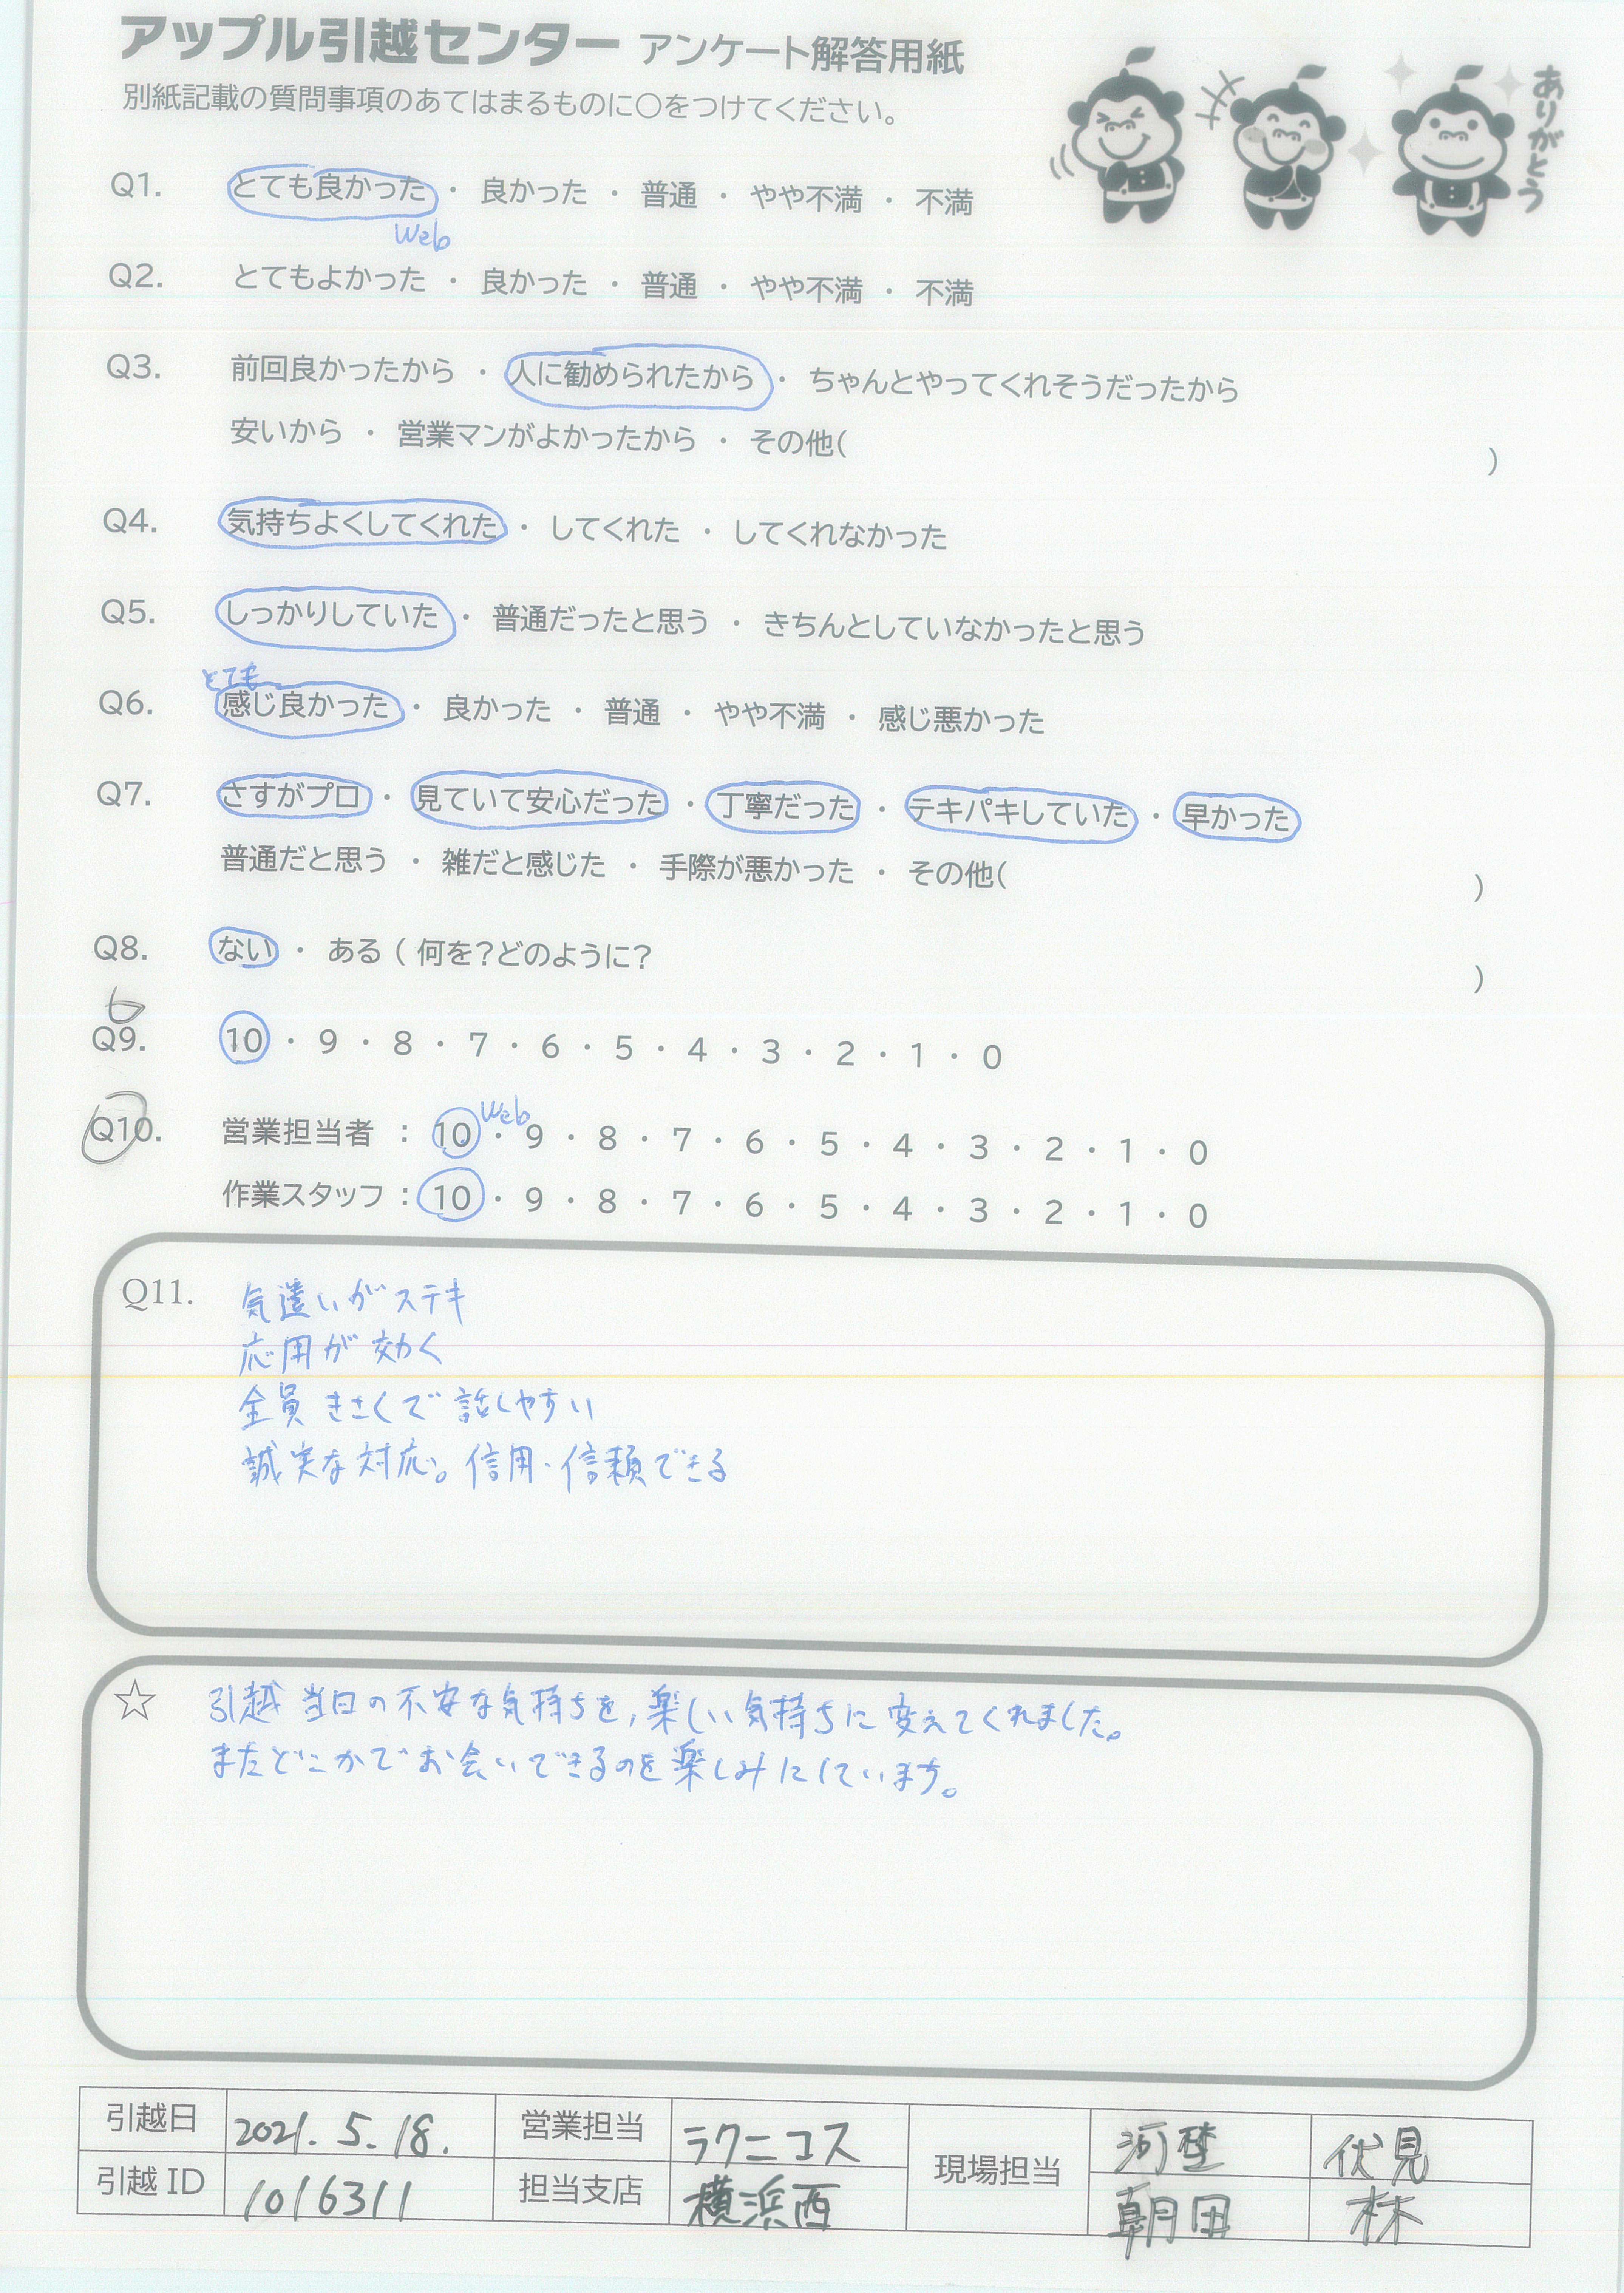 アップル引越センター アンケート解答用紙
別紙記載の質問事項のあてはまるものに〇をつけてください。
ありがとう
Q1. とても良かった ・ 良かった ・ 普通 ・ やや不満 ・ 不満
Web
Q2. とてもよかった ・ 良かった ・ 普通 ・ やや不満 ・ 不満
Q3. 前回良かったから ・ 人に勧められたから ・ ちゃんとやってくれそうだったから
安いから ・ 営業マンがよかったから ・ その他( )
Q4. 気持ちよくしてくれた ・ してくれた ・ してくれなかった
Q5. しっかりしていた ・ 普通だったと思う ・ きちんとしていなかったと思う
とても
Q6. 感じ良かった ・ 良かった ・ 普通 ・ やや不満 ・ 感じ悪かった
Q7. さすがプロ ・ 見ていて安心だった ・ 丁寧だった ・ テキパキしていた ・ 早かった
普通だと思う ・ 雑だと感じた ・ 手際が悪かった ・ その他( )
Q8. ない ・ ある ( 何を?どのように? )
Q9. 10 ・ 9 ・ 8 ・ 7 ・ 6 ・ 5 ・ 4 ・ 3 ・ 2 ・ 1 ・ 0
Web
Q10. 営業担当者 : 10 ・ 9 ・ 8 ・ 7 ・ 6 ・ 5 ・ 4 ・ 3 ・ 2 ・ 1 ・ 0
作業スタッフ : 10 ・ 9 ・ 8 ・ 7 ・ 6 ・ 5 ・ 4 ・ 3 ・ 2 ・ 1 ・ 0
Q11. 気遣いがステキ
応用が効く
全員きさくで話しやすい
誠実な対応。信用・信頼できる
☆ 引越当日の不安な気持ちを、楽しい気持ちに変えてくれました。
またどこかでお会いできるのを楽しみにしています。
引越日 2021.5.18. 営業担当 ラクニコス 現場担当 河埜 伏見
引越 ID 1016311 担当支店 横浜西 朝田 林